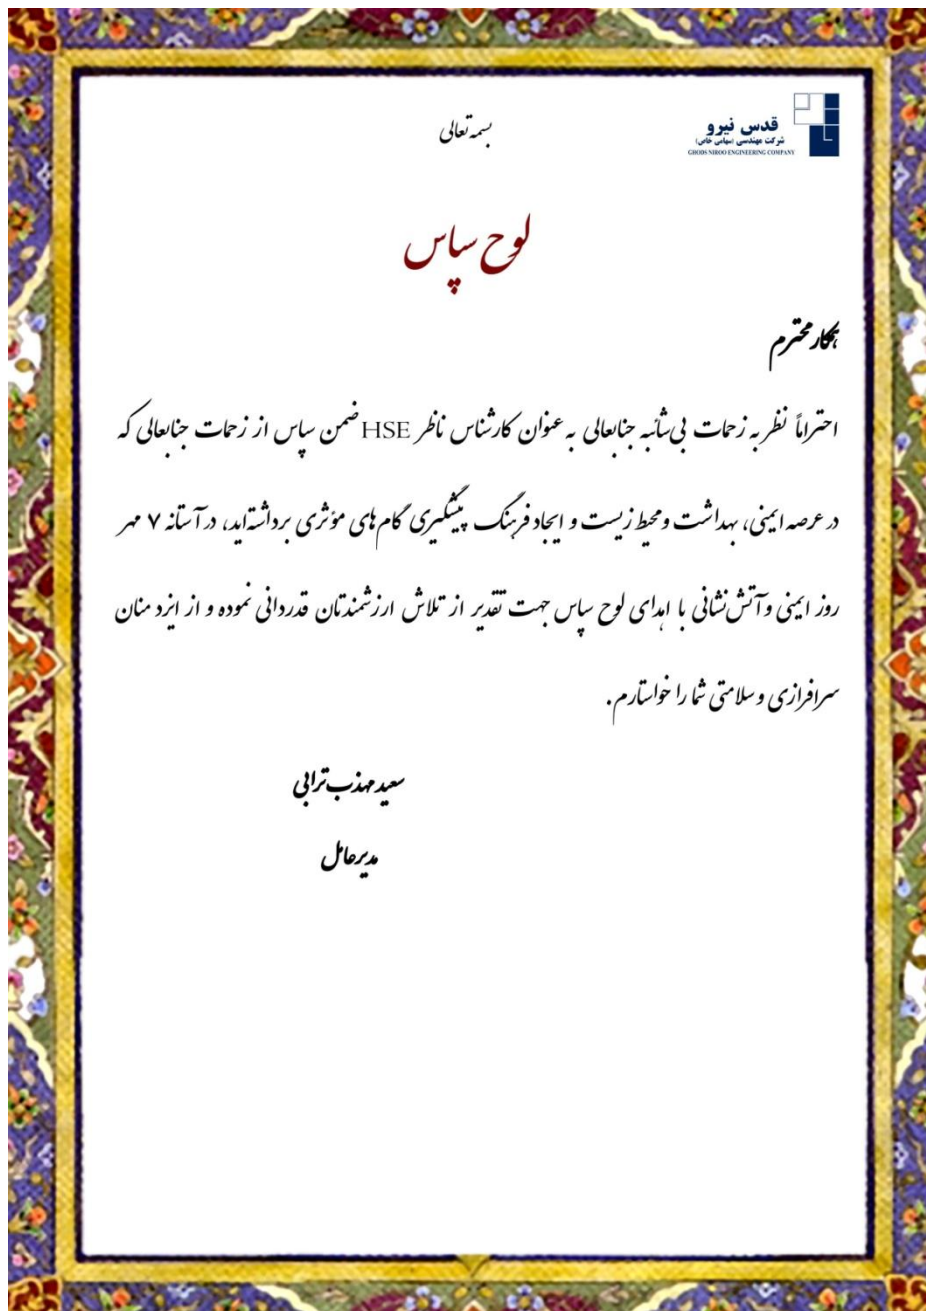 قدس نیرو
شرکت مهندسی (سهامی خاص)
GHODS NIROO ENGINEERING COMPANY
بسمه تعالی
لوح سپاس
همکار محترم
احتراماً نظر به زحمات بی‌شائبه جنابعالی به عنوان کارشناس ناظر HSE ضمن سپاس از زحمات جنابعالی که
در عرصه ایمنی، بهداشت و محیط زیست و ایجاد فرهنگ پیشگیری گام های مؤثری برداشته‌اید، در آستانه ۷ مهر
روز ایمنی و آتش نشانی با اهدای لوح سپاس جهت تقدیر از تلاش ارزشمندتان قدردانی نموده و از ایزد منان
سرافرازی و سلامتی شما را خواستارم.
سعید مهذب ترابی
مدیرعامل